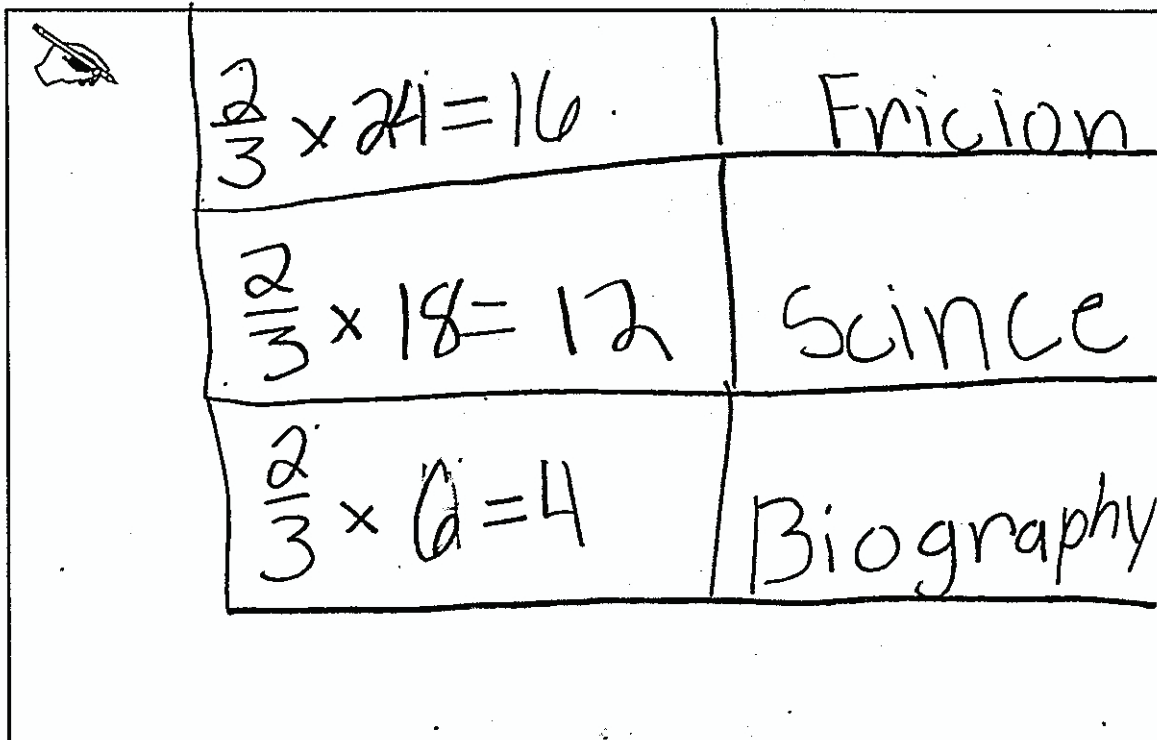 2/3 x 24 = 16 Fricion
2/3 x 18 = 12 Scince
2/3 x 6 = 4 Biography